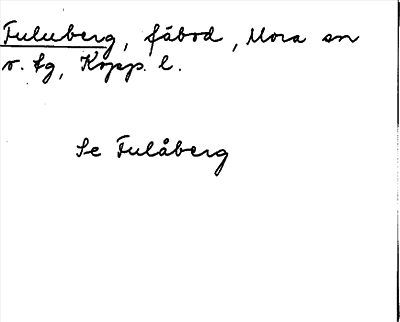 Fuluberg, fäbod, Mora sn
v. fg, Kopp. l.
Se Fulåberg